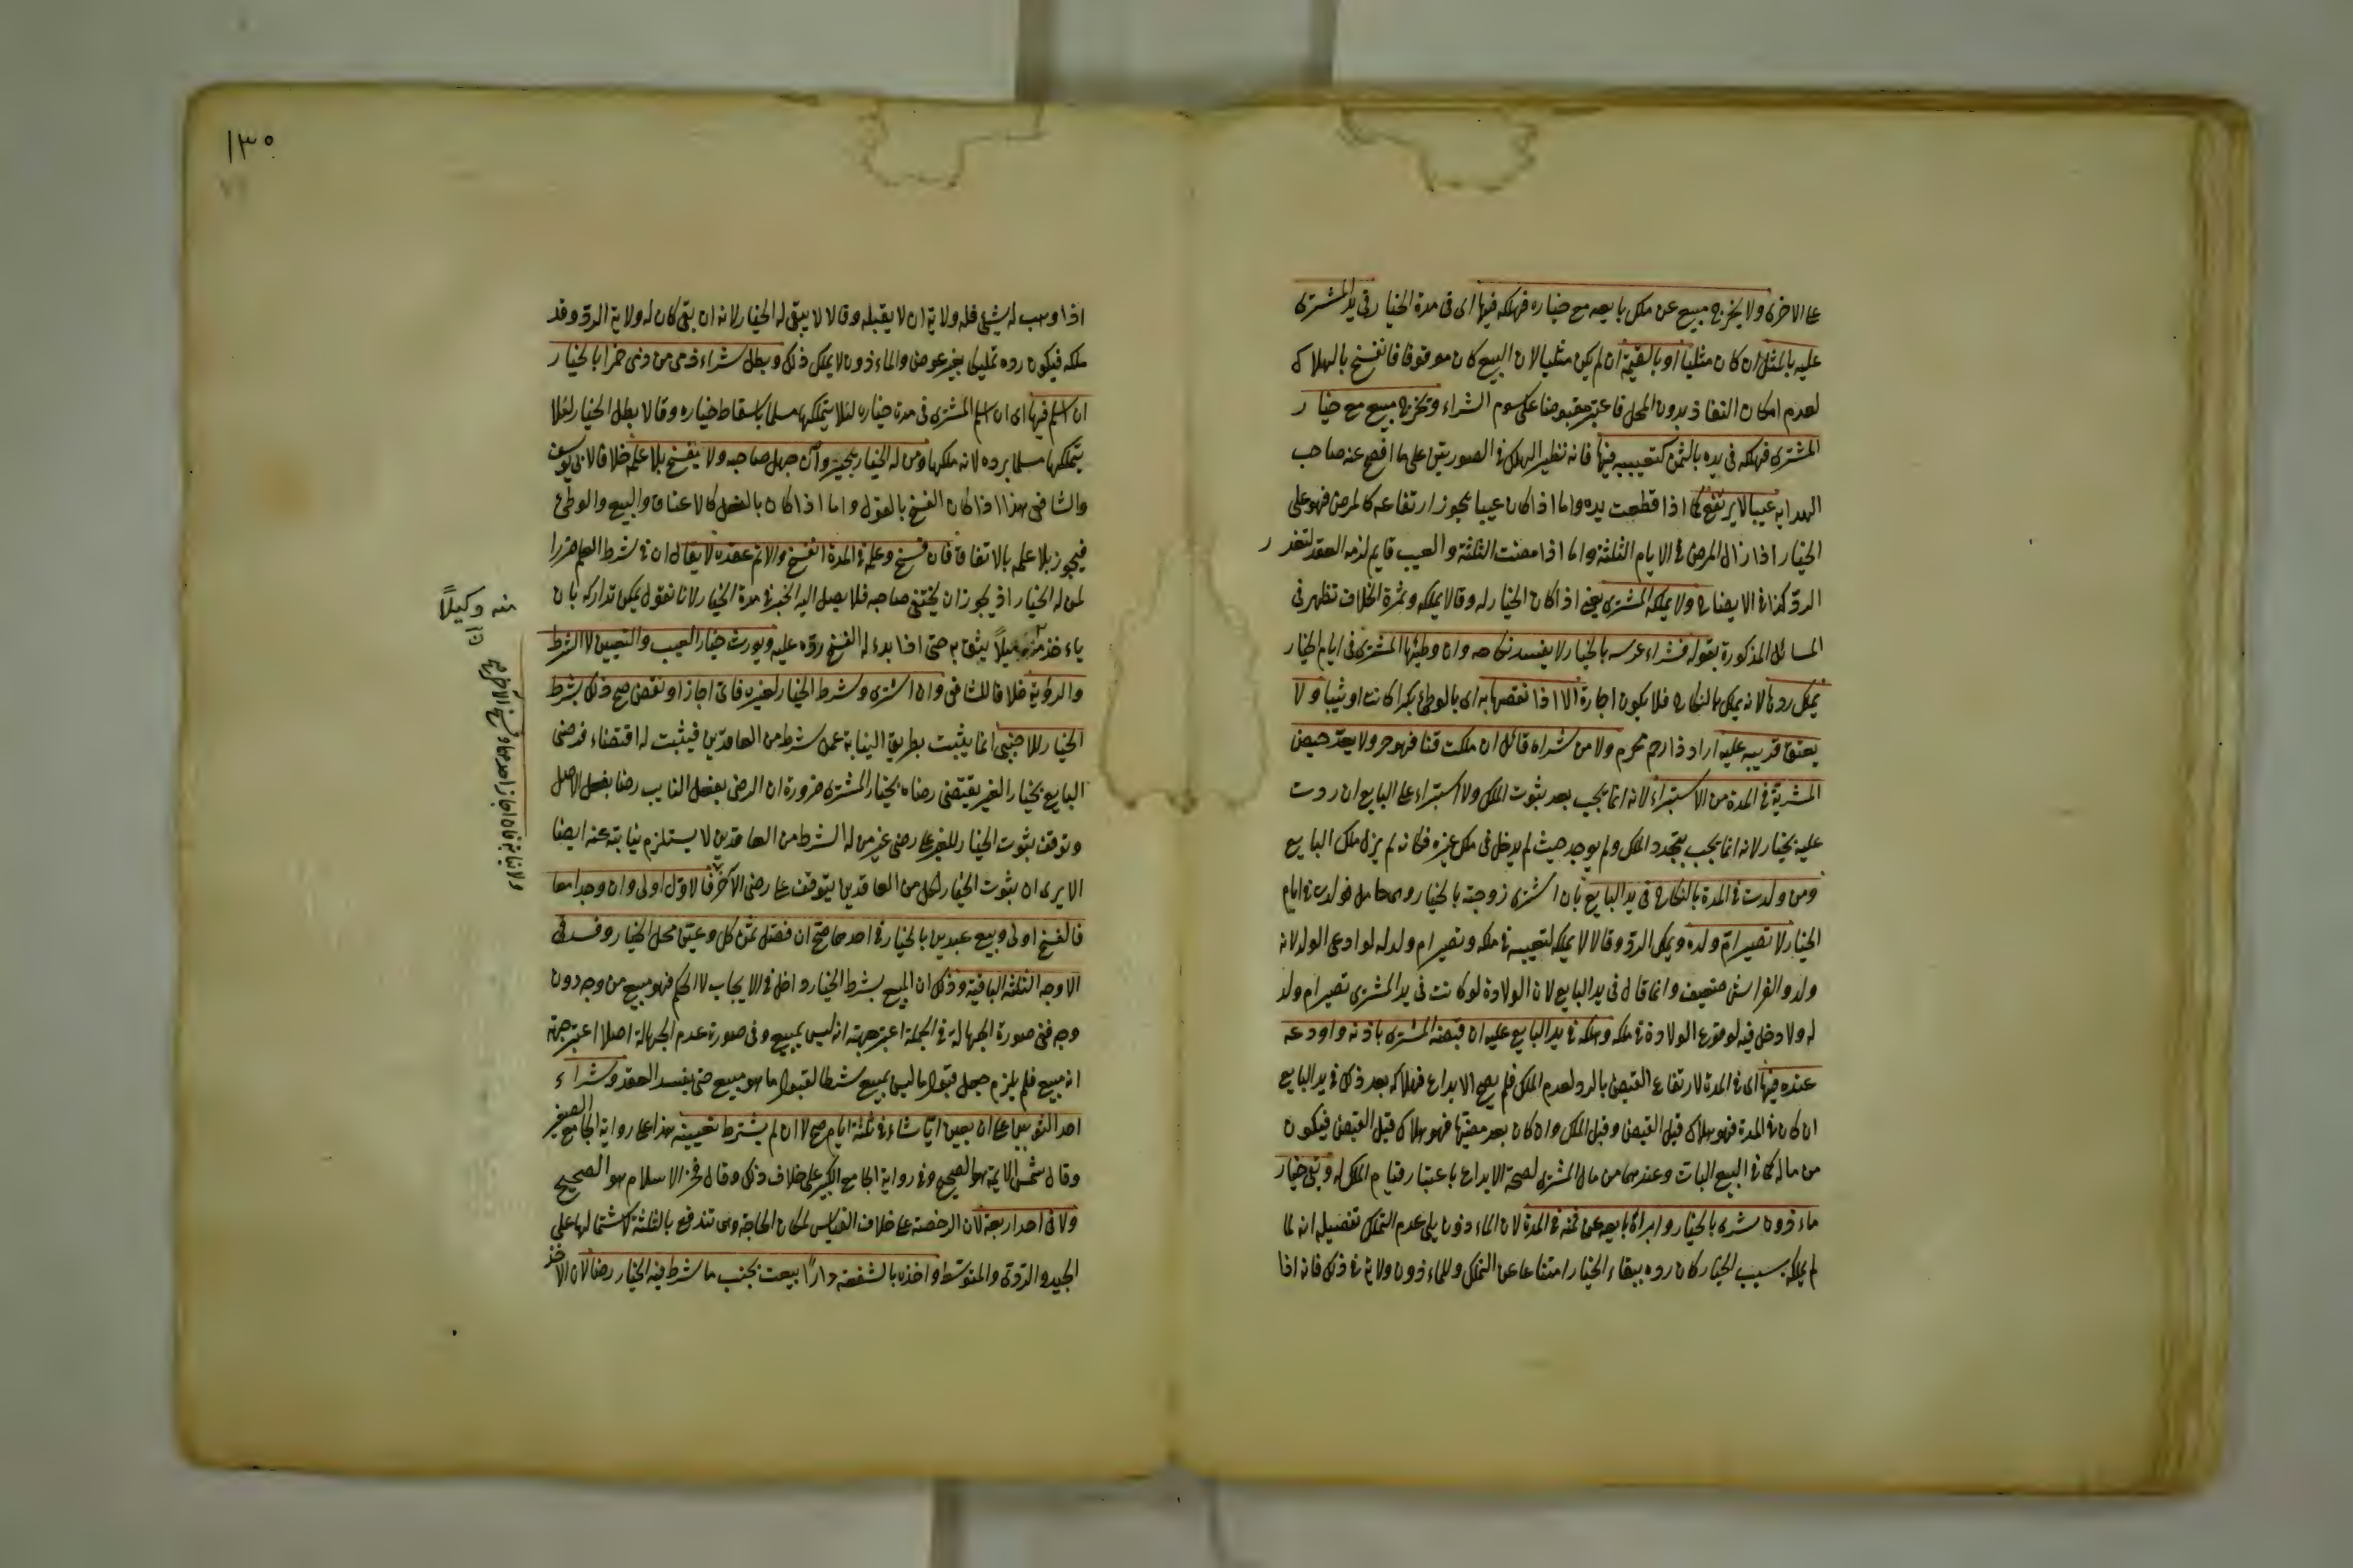 على الاخرى ولا يخرج مبيع عن ملك بايعه مع خياره فهلكه فيها اى فى مدة الخيار فى يد المشترى
عليه بالمثل ان كان مثليا او بالقيمة ان لم يكن مثليا لان البيع كان موقوفا فانفسخ بالهلاك
لعدم امكان النفاذ بدون المحل فاعتبر مقبوضا على سوم الشراء وتخرج مبيع مع خيار
المشترى فهلكه فى يده بالثمن كتعييبه فيها فانه نظير الهلاك فى الصورتين على ما افصح عنه صاحب
الهدايه عيبا لا يرتفع كما اذا قطعت يده واما اذا كان عيبا يجوز ارتفاعه كالمرض فهو على
الخيار اذا زال المرض فى الايام الثلثة واما اذا مضت الثلثة والعيب قايم لزمه العقد لتعذر
الرد كذا فى الايضاح ولا يملكه المشترى يعنى اذا كان الخيار له وقالا يملكه وثمرة الخلاف تظهر فى
المسائل المذكورة بقوله فشراء عرسه بالخيار لا يفسد نكاحه وان وطئها المشترى فى ايام الخيار
يملك ردها لانه يملك بالنكاح فلا يكون اجازة الا اذا نقصها به اى بالوطئ بكرا كانت او ثيبا ولا
يعتق قريبه عليه اراد ذا رحم محرم ولا من شراه قائل ان ملكت قنا فهو حر ولا يعد حيض
المشرية فى المدة من الاستبراء لانه انما يجب بعد ثبوت الملك ولا استبراء على البايع ان ردت
عليه بخيار لانه انما يجب بتجدد الملك ولم يوجد حيث لم يدخل فى ملك غيره فكانه لم يزل ملك البايع
ومن ولدت فى المدة بالنكاح فى يد البايع بان اشترى زوجته بالخيار وهى حامل فولدت فى ايام
الخيار لا تصير ام ولده ويملك الرد وقالا لا يملكه لتعيبه فى ملكه وتصير ام ولد له لو ادعى الولد لانه
ولد والفراش ضعيف وانما قال فى يد البايع لان الولادة لو كانت فى يد المشترى تصير ام ولد
له ولا دخل فيه لوقوع الولادة فى ملكه وهلكه فى يد البايع عليه ان قبضه المشترى باذنه واودعه
عنده فيها اى فى المدة لارتفاع القبض بالرد لعدم الملك فلم يصح الايداع فهلاكه بعد ذلك فى يد البايع
ان كان فى المدة فهو هلاك قبل القبض وقبل الملك وان كان بعد مضيها فهو هلاك قبل القبض فيكون
من ماله كما فى البيع البات وعندهما من مال المشترى لصحة الايداع باعتبار قيام الملك له وبقى خيار
ماءذون شرى بالخيار وابراه بايعه عن ثمنه فى المدة لان الماءذون يلى عدم التملك تفصيله انه لما
لم يملكه بسبب الخيار كان رده ببقاء الخيار امتناعا عن التملك وللماءذون ولاية فى ذلك فانه اذا
١٣٠
اذا وهب له شئ فله ولاية ان لا يقبله وقالا لا يبقى له الخيار لانه ان بقى كان له ولاية الرد وقد
ملكه فيكون رده تمليكا بغير عوض والماءذون لا يملك ذلك وبطل شراء ذمى من ذمى خمرا بالخيار
ان اسلم فيها اى ان اسلم المشترى فى مدة خياره لئلا يتملكها مسلما باسقاط خياره وقالا بطل الخيار لئلا
يتملكها مسلما برده لانه ملكها ومن له الخيار يجيز وان جهل صاحبه ولا يفسخ بلا علمه خلافا لابى يوسف
والشافعى هذا اذا كان الفسخ بالقول واما اذا كان بالفعل كالاعتاق والبيع والوطئ
فيجوز بلا علمه بالاتفاق فان فسخ وعلمه فى المدة انفسخ والا تم عقده لا يقال ان فى شرط العلم ضررا
لمن له الخيار اذ يجوز ان يختفى صاحبه فلا يصل اليه الخبر فى مدة الخيار لانا نقول يمكن تداركه بان
ياءخذ منه كفيلا يثق به حتى اذا بدء له الفسخ رده عليه ويورث خيار العيب والتعيين لا الشرط
والرؤية خلافا للشافعى وان اشترى وشرط الخيار لغيره فاى اجاز او نقض صح ذلك شرط
الخيار للاجنبى انما يثبت بطريق النيابة عمن شرط من العاقدين فيثبت له اقتضاء فرضى
البايع بخيار الغير يقتضى رضاه بخيار المشترى ضرورة ان الرضى بفعل النايب رضا بفعل الاصل
وتوقف ثبوت الخيار للغير على رضى غير من له الشرط من العاقدين لا يستلزم نيابته عنه ايضا
الا يرى ان ثبوت الخيار لكل من العاقدين يتوقف على رضى الآخر فالاول اولى وان وجدا معا
فالفسخ اولى وبيع عبدين بالخيار فى احدهما صح ان فصل ثمن كل وعين محل الخيار وفسد فى
الاوجه الثلثة الباقية وذلك ان المبيع بشرط الخيار داخل فى الايجاب لا الحكم فهو مبيع من وجه دون
وجه ففى صورة الجهالة فى الجملة اعتبر جهة انه ليس بمبيع وفى صورة عدم الجهالة اصلا اعتبر جهة
انه مبيع فلم يلزم جعل قبول ما ليس بمبيع شرطا لقبول ما هو مبيع حتى يفسد العقد وشراء
احد الثوبين على ان يعين ايا شاء فى ثلثة ايام صح لا ان لم يشترط تعيينه هذا على رواية الجامع الصغير
وقال شمس الايمة هو الصحيح وفى رواية الجامع الكبير على خلاف ذلك وقال فخر الاسلام هو الصحيح
ولا فى احد اربعة لان الرخصة على خلاف القياس لمكان الحاجة وهى تندفع بالثلثة لاشتمالها على
الجيد والردئ والمتوسط واخذه بالشفعة دارا بيعت بجنب ما شرط فيه الخيار رضا لان الاخذ
منه وكيلا